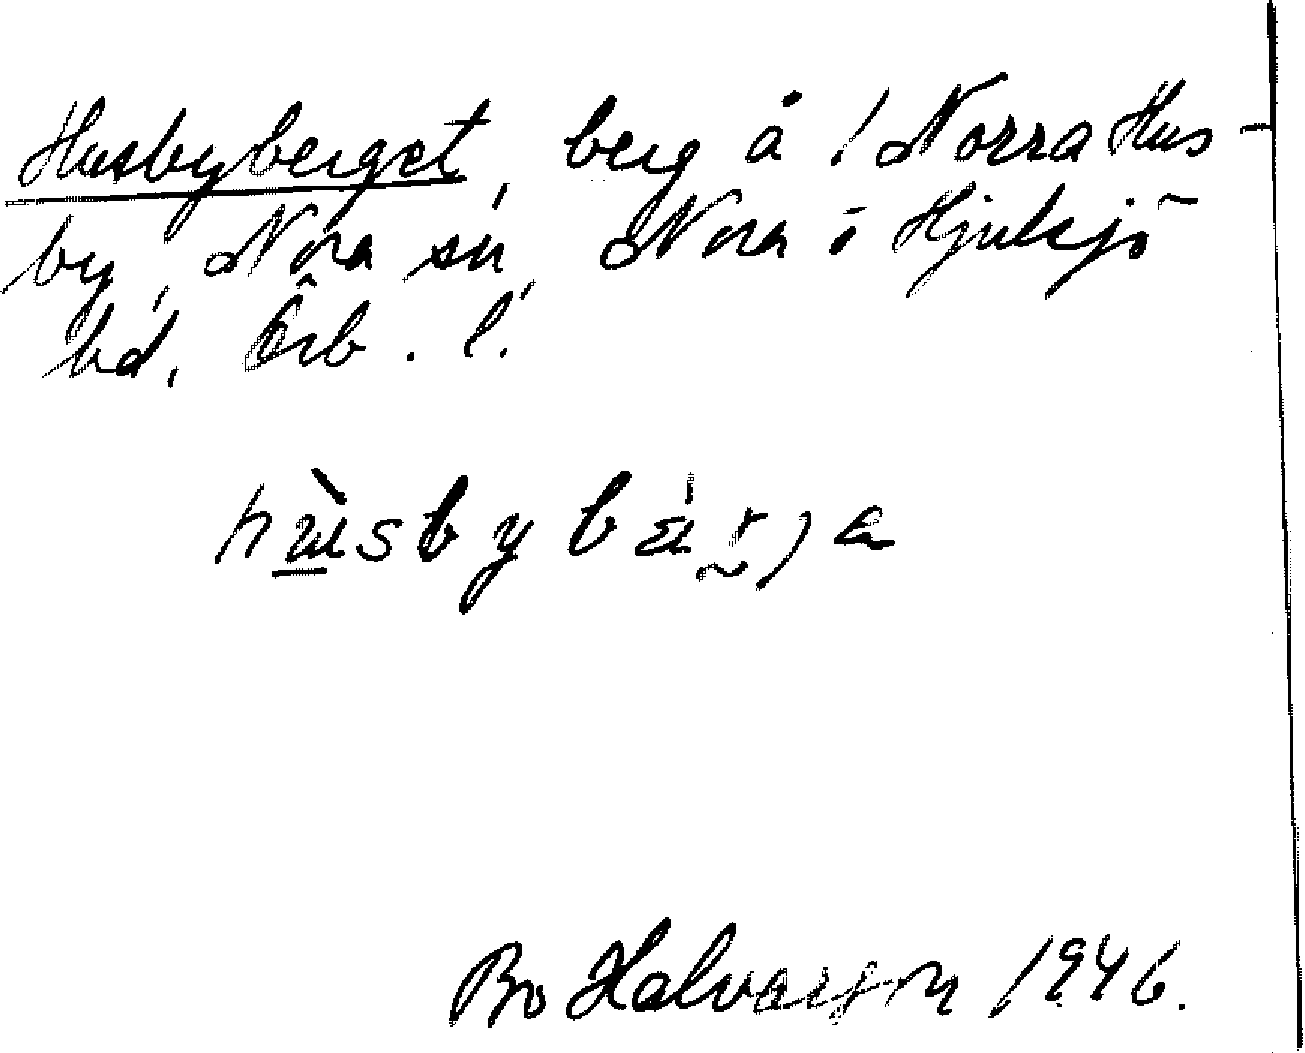 Husbyberget, berg å ! Norra Hus-
by, Nora sn, Nora ö Hjulsjö
hd, Örb. l.
Bo Halvarson 1946.